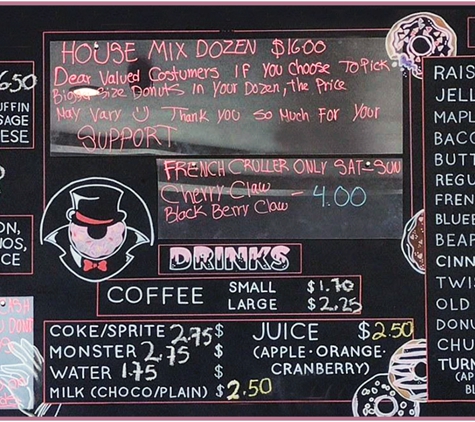 HOUSE MIX DOZEN $16.00
Dear Valued Costumers If You Choose To Pick
Bigger Size Donuts in Your Dozen, the Price
May Vary ☺ Thank you So Much For Your
SUPPORT
FRENCH CRULLER ONLY SAT-SUN
Cherry Claw - 4.00
Black Berry Claw
DRINKS
COFFEE SMALL $1.70
LARGE $2.25
COKE/SPRITE 2.75 $
MONSTER 2.75 $
WATER 1.75 $
MILK (CHOCO/PLAIN) $2.50
JUICE $2.50
(APPLE·ORANGE·
CRANBERRY)
6.50
UFFIN
SAGE
ESE
ON,
NOS,
CE
RAIS
JELL
MAPL
BACO
BUTT
REGU
FREN
BLUE
BEAR
CINN
TWIS
OLD
DONU
CHU
TURN
(AP
BL